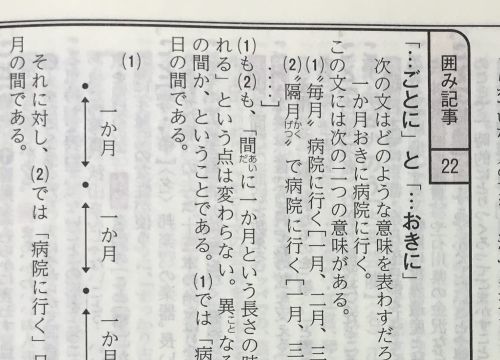 囲み記事
22
「…ごとに」と「…おきに」
次の文はどのような意味を表わすだろ
一か月おきに病院に行く。
この文には次の二つの意味がある。
(1)〝毎月〟病院に行く[一月、二月、三
(2)〝隔月〟で病院に行く[一月、三
……]
(1)も(2)も、「間に一か月という長さの時
れる」という点は変わらない。異なる
の間か、ということである。(1)では「病
日の間である。
(1)
一か月
一か月
一か
それに対し、(2)では「病院に行く」
月の間である。